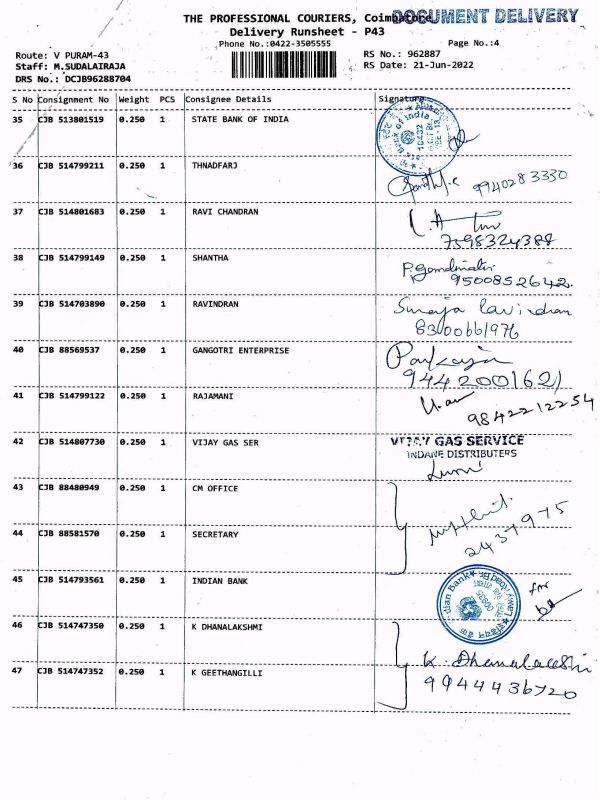 THE PROFESSIONAL COURIERS, Coimbatore
DOCUMENT DELIVERY
Delivery Runsheet - P43
Phone No.:0422-3505555
Page No.:4
Route: V PURAM-43
RS No.: 962887
Staff: M.SUDALAIRAJA
RS Date: 21-Jun-2022
DRS No.: DCJB96288704
S No Consignment No Weight PCS Consignee Details Signature
35 CJB 513801519 0.250 1 STATE BANK OF INDIA
36 CJB 514799211 0.250 1 THNADFARJ
9940283330
37 CJB 514801683 0.250 1 RAVI CHANDRAN
7598324388
38 CJB 514799149 0.250 1 SHANTHA
9500852642
39 CJB 514703890 0.250 1 RAVINDRAN
8300661976
40 CJB 88569537 0.250 1 GANGOTRI ENTERPRISE
9442001621
41 CJB 514799122 0.250 1 RAJAMANI
9842212254
42 CJB 514807730 0.250 1 VIJAY GAS SER
VIJAY GAS SERVICE
INDANE DISTRIBUTERS
43 CJB 88480949 0.250 1 CM OFFICE
2437975
44 CJB 88581570 0.250 1 SECRETARY
45 CJB 514793561 0.250 1 INDIAN BANK
Indian Bank
for
46 CJB 514747350 0.250 1 K DHANALAKSHMI
K. Dhanalakshmi
47 CJB 514747352 0.250 1 K GEETHANGILLI
9944436720